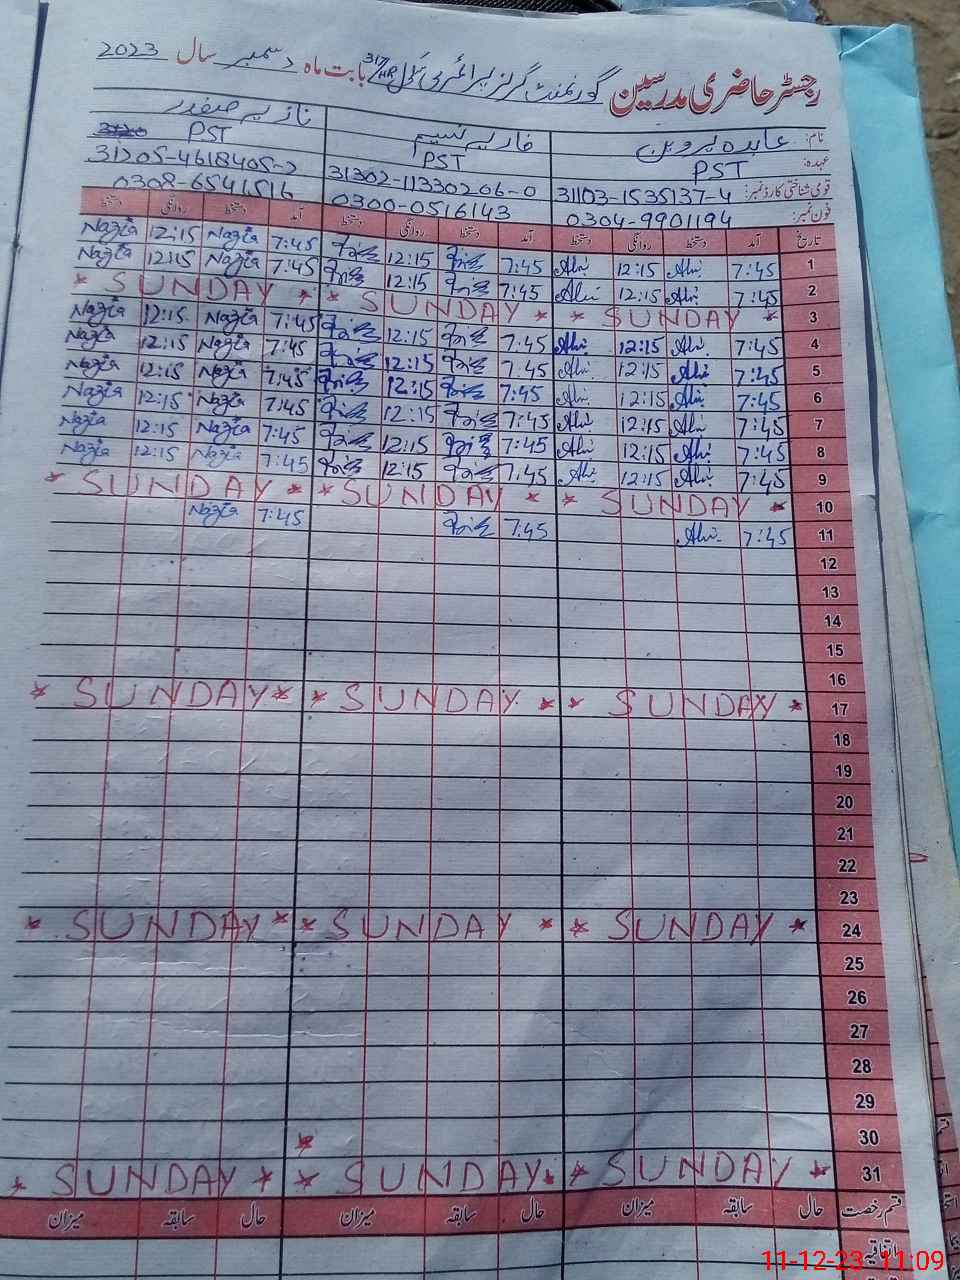 رجسٹر حاضری مدرسین گورنمنٹ گرلز پرائمری سکول 317/HR بابت ماہ دسمبر سال 2023
نام: عابدہ پروین فاریہ نسیم نازیہ صفدر
عہدہ: PST PST PST
قومی شناختی کارڈ نمبر: 31103-1535137-4 31302-11330206-0 31205-4618405-2
فون نمبر: 0304-9901194 0300-0516143 0308-6541516
تاریخ آمد دستخط روانگی دستخط آمد دستخط روانگی دستخط آمد دستخط روانگی دستخط
1 7:45 12:15 7:45 12:15 7:45 Nazia 12:15 Nazia
2 7:45 12:15 7:45 12:15 7:45 Nazia 12:15 Nazia
3 * SUNDAY * * SUNDAY * * SUNDAY *
4 7:45 12:15 7:45 12:15 7:45 Nazia 12:15 Nazia
5 7:45 12:15 7:45 12:15 7:45 Nazia 12:15 Nazia
6 7:45 12:15 7:45 12:15 7:45 Nazia 12:15 Nazia
7 7:45 12:15 7:45 12:15 7:45 Nazia 12:15 Nazia
8 7:45 12:15 7:45 12:15 7:45 Nazia 12:15 Nazia
9 7:45 12:15 7:45 12:15 7:45 Nazia 12:15 Nazia
10 * SUNDAY * * SUNDAY * * SUNDAY *
11 7:45 7:45 7:45 Nazia
12
13
14
15
16
17 * SUNDAY * * SUNDAY * * SUNDAY *
18
19
20
21
22
23
24 * SUNDAY * * SUNDAY * * SUNDAY *
25
26
27
28
29
30
31 * SUNDAY * * SUNDAY * * SUNDAY *
قسم رخصت حال سابقہ میزان حال سابقہ میزان حال سابقہ میزان
اتفاقیہ
11-12-23 11:09